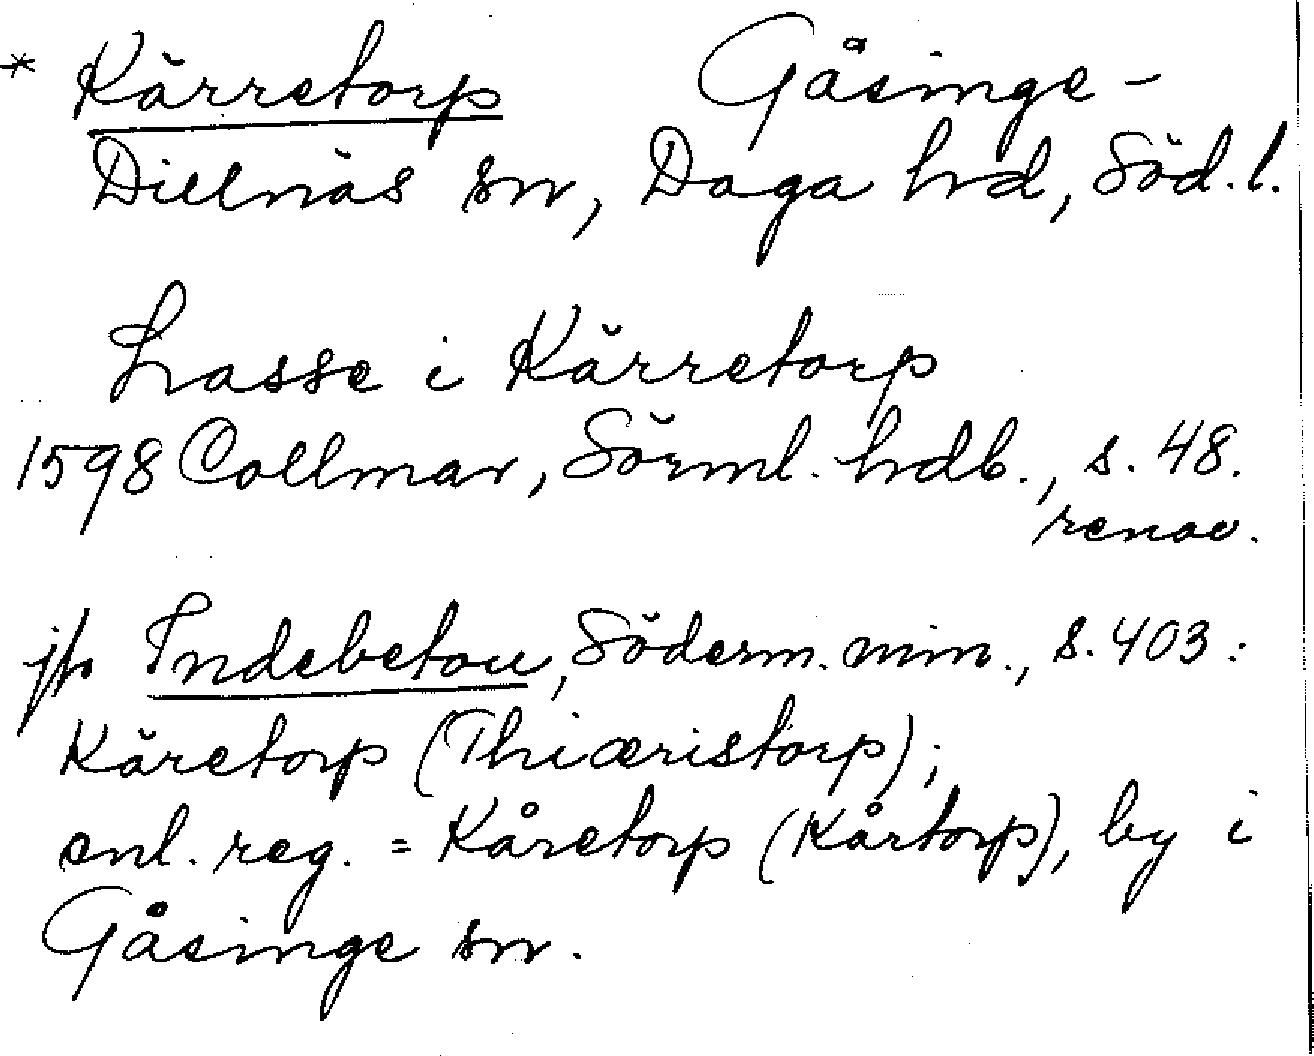 * Kärretorp Gåsinge-
Dillnäs sn, Daga hd, Söd. l.
Lasse i Kärretorp
1598 Collmar, Sörml. hdb., s. 48.
renov.
jfr Indebetou, Söderm. min., s. 403:
Käretorp (Thiæristorp);
enl. reg. = Kåretorp (Kårtorp), by i
Gåsinge sn.